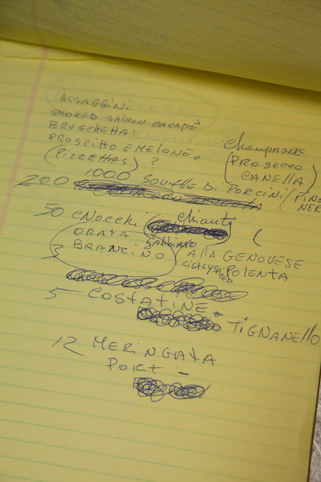 ASSAGGINI
SMOKED SALMON CANAPÈ
BRUSCHETTA!
PROSCITTO E MELONE. Champagne
(PIZZETTAS) ? (PROSECCO
CANELLA)
200 1000 SOUFFLE DI PORCINI / PINO NERO
50 GNOCCHI Chianti (
ORATA GABBIANO ALLA GENOVESE
3 BRANCINO POLENTA
5 COSTATINE - TIGNANELLO
12 MERINGATA
PORT -